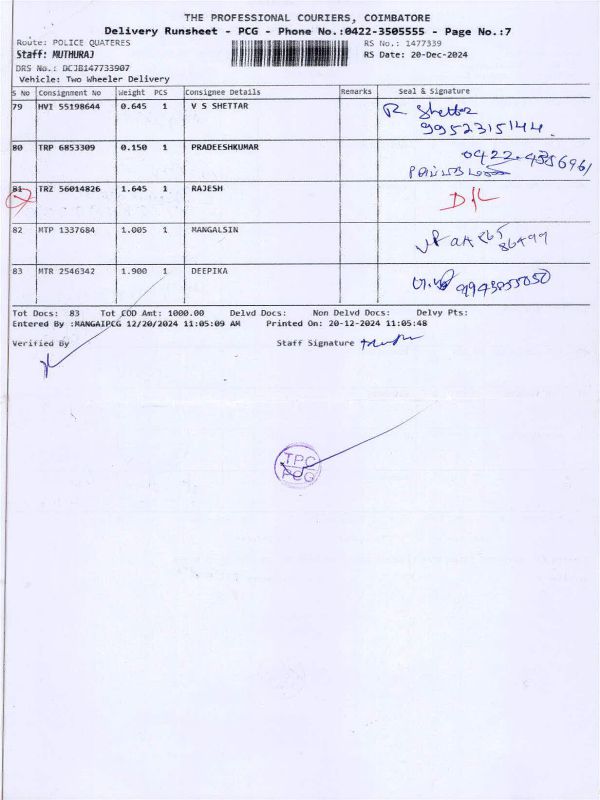 THE PROFESSIONAL COURIERS, COIMBATORE
Delivery Runsheet - PCG - Phone No.:0422-3505555 - Page No.:7
Route: POLICE QUATERES RS No.: 1477339
Staff: MUTHURAJ RS Date: 20-Dec-2024
DRS No.: DCJB147733907
Vehicle: Two Wheeler Delivery
S No Consignment No Weight PCS Consignee Details Remarks Seal & Signature
79 HVI 55198644 0.645 1 V S SHETTAR R Shettar
9952315144
80 TRP 6853309 0.150 1 PRADEESHKUMAR
81 TRZ 56014826 1.645 1 RAJESH D/L
82 MTP 1337684 1.005 1 MANGALSIN
83 MTR 2546342 1.900 1 DEEPIKA 9943855050
Tot Docs: 83 Tot COD Amt: 1000.00 Delvd Docs: Non Delvd Docs: Delvy Pts:
Entered By :MANGAIPCG 12/20/2024 11:05:09 AM Printed On: 20-12-2024 11:05:48
Verified By Staff Signature
TPC
PCG